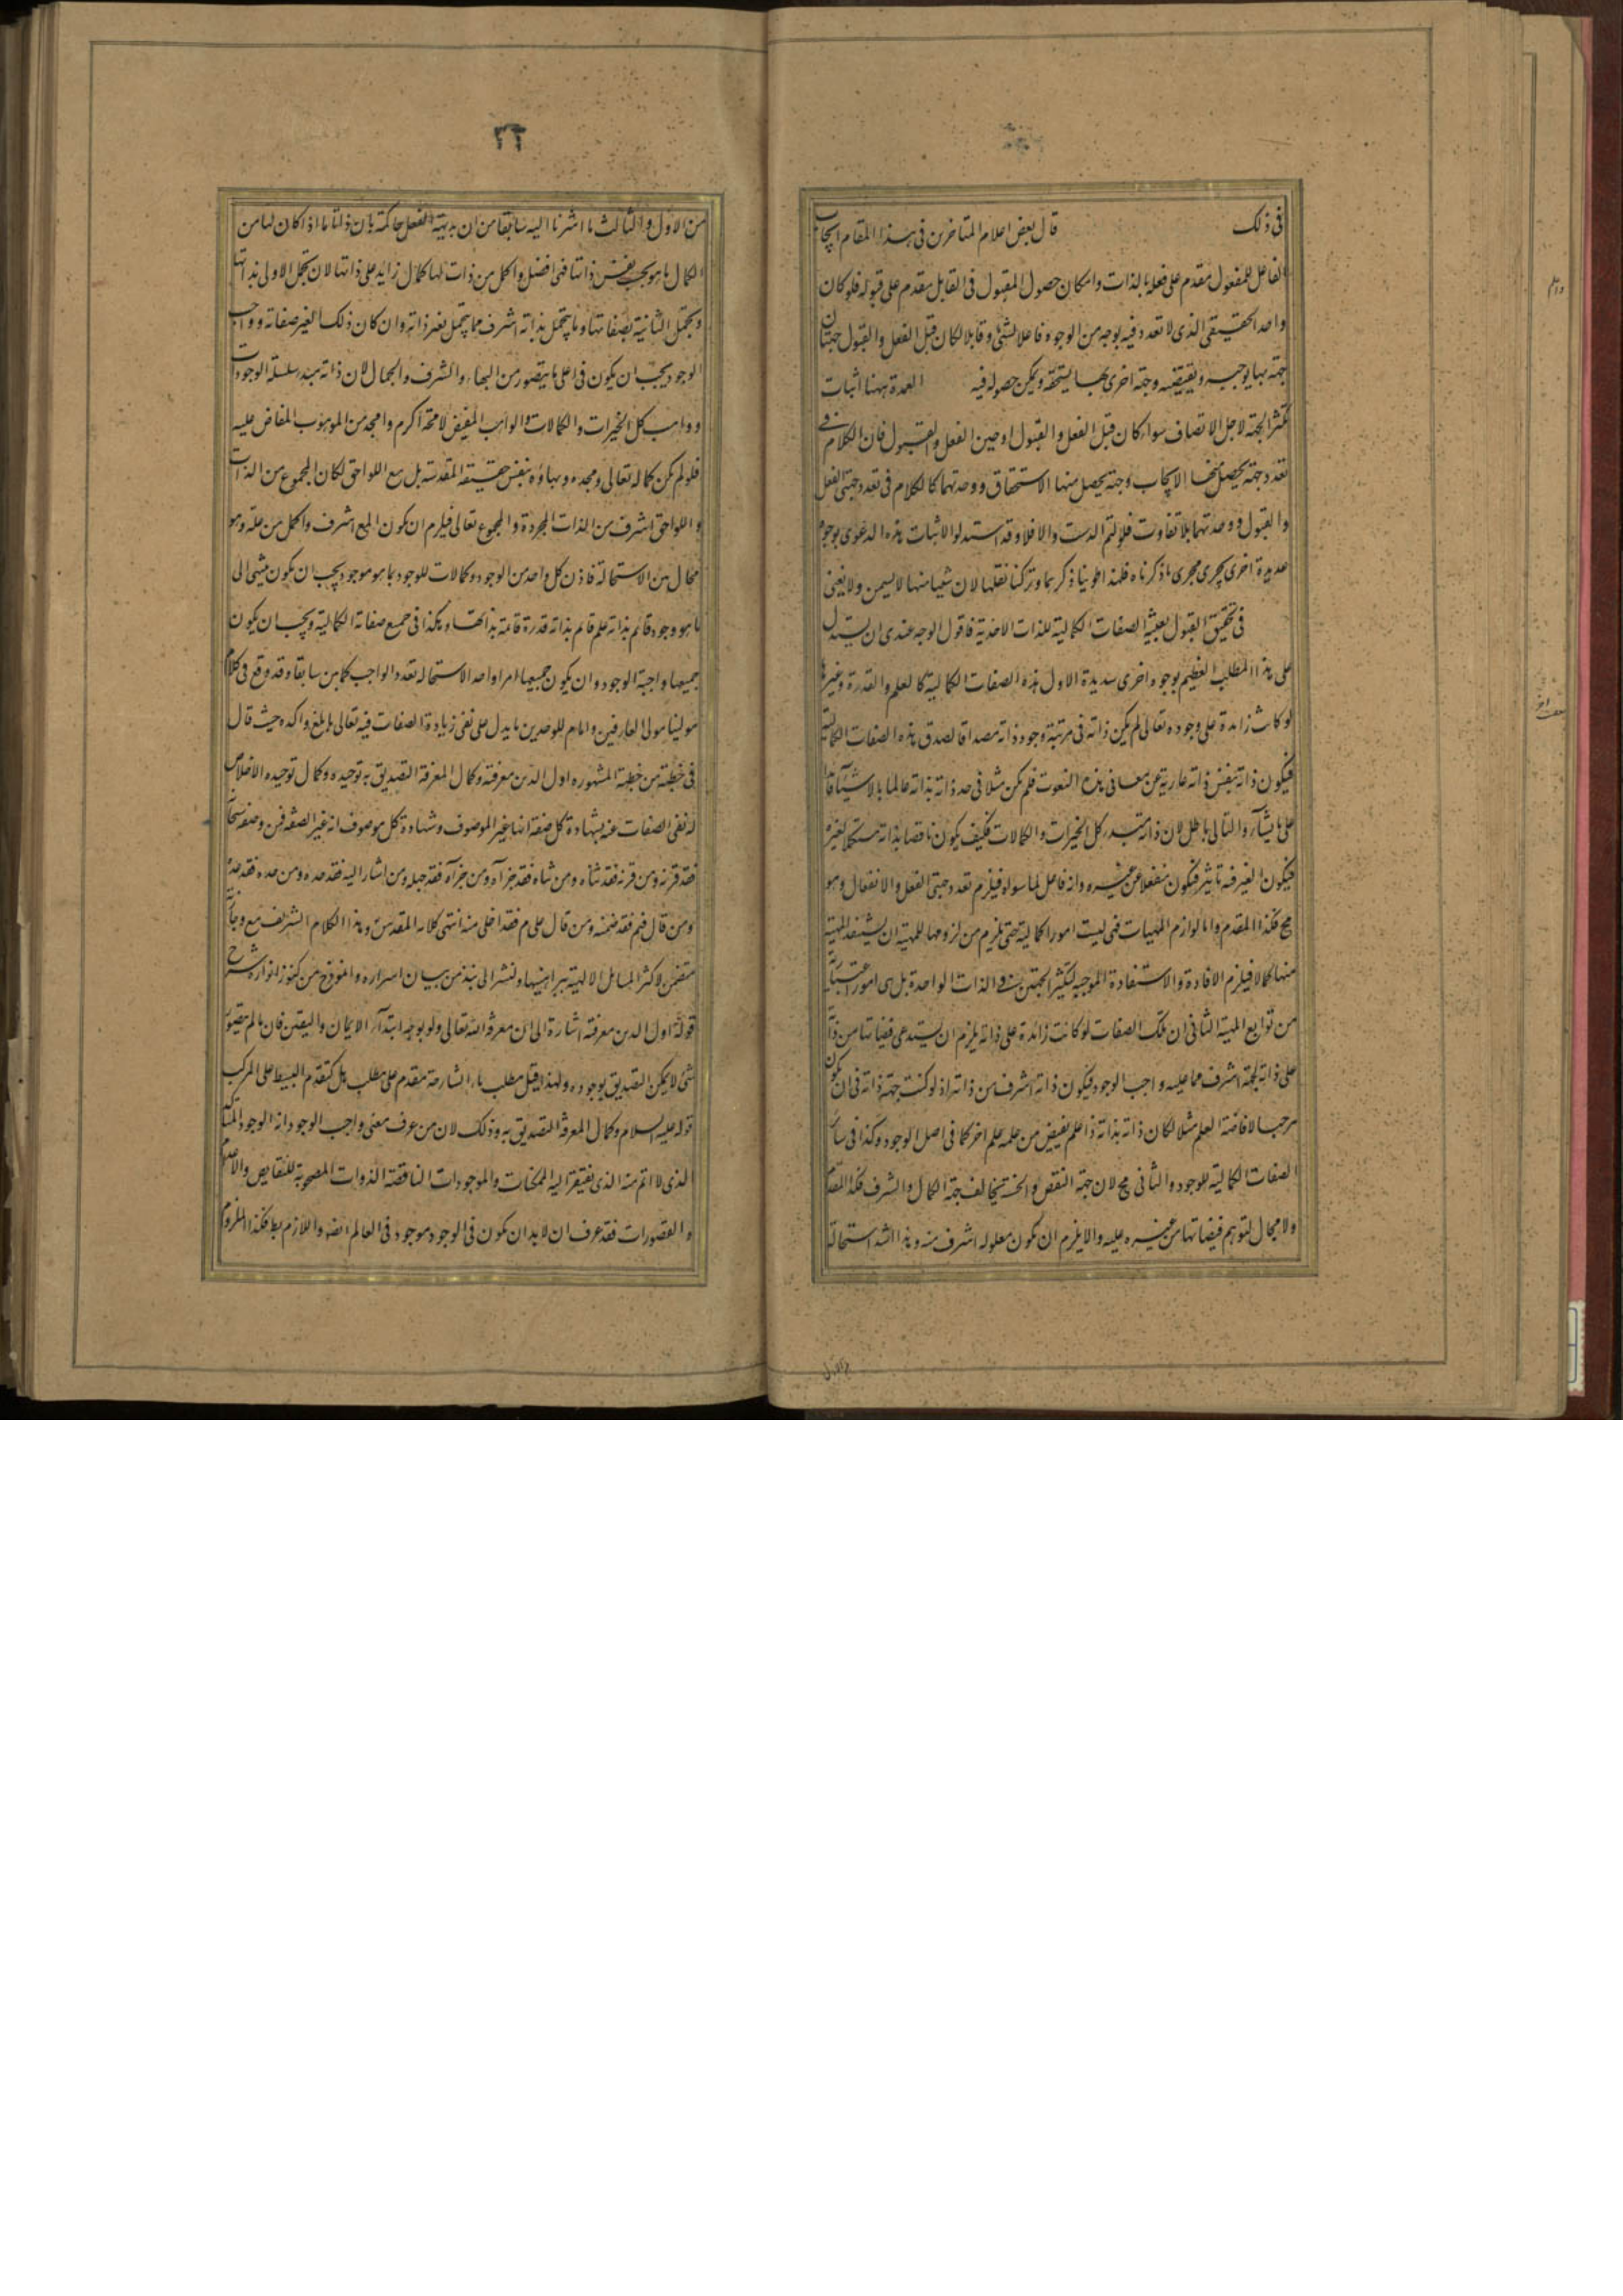 في ذلك قال بعض اعلام المتاخرين في هذا المقام ايجاب
الفاعل للمفعول مقدم على فعله بالذات وامكان حصول المقبول في القابل مقدم على قبوله فلو كان
واحد الحقيقي الذي لا تعدد فيه بوجه من الوجوه فاعلا لشئ وقابلا لكان قبل الفعل والقبول جهتان
جهة بها يوجبه ويقتضيه وجهة اخرى بها يستحقه ويمكن حصوله فيه العمدة ههنا اثبات
تكثر الجهة لاجل الاتصاف سواء كان قبل الفعل والقبول او حين الفعل والقبول فان الكلام في
تعدد جهة يحصل بها الايجاب وجهة يحصل منها الاستحقاق ووحدتهما كالكلام في تعدد جهتي الفعل
والقبول ووحدتهما بلا تفاوت فلو تم الدست والا فلا وقد استدلوا لاثبات هذه الدعوى بوجوه
عديدة اخرى يجرى مجرى ما ذكرناه فلهذا طوينا ذكرها وتركنا نقلها لان شيئا منها لا يسمن ولا يغني
في تحقيق القول بعينية الصفات الكمالية للذات الاحدية فاقول الوجه عندي ان يستدل
على هذا المطلب العظيم بوجوه اخرى سديدة الاول هذه الصفات الكمالية كالعلم والقدرة وغيرها
لو كانت زائدة على وجوده تعالى لم يكن ذاته في مرتبة وجود ذاته مصداقا لصدق هذه الصفات الكمالية
فيكون ذاته بنفس ذاته عارية عن معاني هذه النعوت فلم يكن مثلا في حد ذاته بذاته عالما بالاشياء قادرا
على ما يشاء والتالي باطل لان ذاته مبدء كل الخيرات والكمالات فكيف يكون ناقصا بذاته مستكملا بغيره
فيكون الغير فيه تاثير فيكون منفعلا عن غيره وانه فاعل لما سواه فيلزم تعدد جهتي الفعل والانفعال وهو
مح فكذا المقدم واما لوازم المهيات فهي ليست امورا كمالية حتى يلزم من لزومها للمهية ان يستفيد المهية
منها كمالا فيلزم الافادة والاستفادة الموجبة لتكثر الجهتين في الذات الواحدة بل هي امور اعتبارية
من توابع المهية الثاني ان تلك الصفات لو كانت زائدة على ذاته يلزم ان يستدعي فيضانها من ذاته
على ذاته لجهة اشرف مما عليه واجب الوجود فيكون ذاته اشرف من ذاته اذ لو كنت جهة ذاته في ان يكون
مرجبا لافاضة العلم مثلا لكان ذاته بذاته ذا علم يفيض من علمه علم اخر كما في اصل الوجود وكذا في سائر
الصفات الكمالية للوجود والثاني مح لان جهة النقص والخسة يخالف جهة الكمال والشرف فكذا المقدم
ولا مجال لتوهم فيضانها من غيره عليه والا يلزم ان يكون معلوله اشرف منه وهذا اشد استحالة
من الاول
٢٦
من الاول والثالث ما اشرنا اليه سابقا من ان بديهة العقل حاكمة بان ذاتا ما اذا كان لها من
الكمال ما هو بحسب نفس ذاتها فهي افضل واكمل من ذات لها كمال زايد على ذاتها لان تجمل الاولى بذاتها
وتجمل الثانية بصفاتها وما يتجمل بذاته اشرف مما يتجمل بغير ذاته وان كان ذلك الغير صفاته وواجب
الوجود يجب ان يكون في اعلى ما يتصور من البهاء والشرف والجمال لان ذاته مبدء سلسلة الوجودات
وواهب كل الخيرات والكمالات والواهب المفيض لا محة اكرم وامجد من الموهوب المفاض عليه
فلو لم يكن كماله تعالى ومجده وبهاؤه بنفس حقيقة المقدسة بل مع اللواحق لكان المجموع من الذات
واللواحق اشرف من الذات المجردة والمجموع تعالى فيلزم ان يكون المع اشرف واكمل من علة وهو
محال بين الاستحالة فاذن كل واحد من الوجود وكمالات للوجود بما هو موجود يجب ان يكون منتهى الى
ما هو وجود قائم بذاته علم قائم بذاته قدرة قائمة بذاتها وهكذا في جميع صفاته الكمالية ويجب ان يكون
جميعها واجبة الوجود وان يكون جميعها امرا واحدا لاستحالة تعدد الواجب كما بين سابقا وقد وقع في كلام
مولينا مولى العارفين وامام الموحدين ما يدل على نفى زيادة الصفات فيه تعالى بابلغ واكده حيث قال
في خطبة من خطبة المشهورة اول الدين معرفته وكمال المعرفة التصديق به توحيده وكمال توحيده الاخلاص
له نفى الصفات عنه بشهادة كل صفة انها غير الموصوف وشهادة كل موصوف انه غير الصفة فمن وصفه سبحانه
فقد قرنه ومن قرنه فقد ثناه ومن ثناه فقد جزأه ومن جزأه فقد جهله ومن اشار اليه فقد حده ومن حده فقد عده
ومن قال فيم فقد ضمنه ومن قال على م فقد اخلى منه انتهى كلامه المقدس وهذا الكلام الشريف مع وجازته
متضمن لاكثر المسائل الالهية ببراهينها ولنشر الى نبذ من بيان اسراره وانموذج من كنوز انواره شرح
قوله اول الدين معرفته اشارة الى ان معرفة الله تعالى ولو بوجه ابتداء الايمان واليقين فان ما لم يتصور
شئ لا يمكن التصديق بوجوده ولهذا قيل مطلب ماء الشارحة مقدم على مطلب هل كتقدم البسيط على المركب
قوله عليه السلام وكمال المعرفة التصديق به وذلك لان من عرف معنى واجب الوجود انه الوجود المتاكد
الذي لا اتم منه الذي يفتقر اليه الممكنات والموجودات الناقصة الذوات المصحوبة للنقايص والاعدام
والقصورات فقد عرف ان لا بد ان يكون في الوجود موجود في العالم ايضه واللازم بط فكذا الملزوم